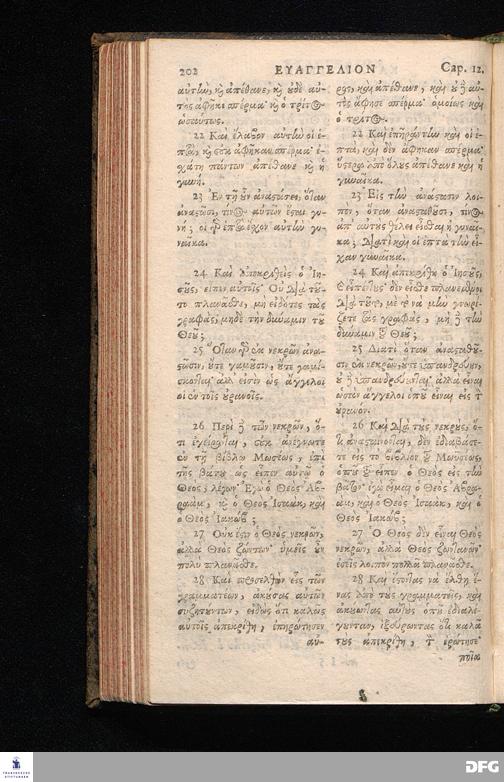 202 ΕΥΑΓΓΕΛΙΟΝ Cap. 12.
αὐτὴν, καὶ ἀπέθανε, καὶ οὐδὲ αὐ-
τὸς ἀφῆκε σπέρμα· καὶ ὁ τρίτος
ὡσαύτως.
22 Καὶ ἔλαβον αὐτὴν οἱ ἑ-
πτὰ, καὶ οὐκ ἀφῆκαν σπέρμα· ἐ-
χάτη πάντων ἀπέθανε καὶ ἡ
γυνή.
23 Ἐν τῇ οὖν ἀναστάσει, ὅταν
ἀναστῶσι, τίνος αὐτῶν ἔσται γυ-
νή; οἱ γὰρ ἑπτὰ ἔχον αὐτὴν γυ-
ναῖκα.
24 Καὶ ἀποκριθεὶς ὁ Ἰη-
σοῦς, εἶπεν αὐτοῖς· Οὐ διὰ τοῦ-
το πλανᾶσθε, μὴ εἰδότες τὰς
γραφὰς, μηδὲ τὴν δύναμιν τοῦ
Θεοῦ;
25 Ὅταν γὰρ ἐκ νεκρῶν ἀνα-
στῶσιν, οὔτε γαμοῦσιν, οὔτε γαμί-
σκονται· ἀλλ' εἰσὶν ὡς ἄγγελοι
οἱ ἐν τοῖς οὐρανοῖς.
26 Περὶ δὲ τῶν νεκρῶν, ὅ-
τι ἐγείρονται, οὐκ ἀνέγνωτε
ἐν τῇ βίβλῳ Μωσέως, ἐπὶ
τῆς βάτου ὡς εἶπεν αὐτῷ ὁ
Θεὸς, λέγων· Ἐγὼ ὁ Θεὸς Ἀβ-
ραὰμ, καὶ ὁ Θεὸς Ἰσαὰκ, καὶ
ὁ Θεὸς Ἰακώβ;
27 Οὐκ ἔστιν ὁ Θεὸς νεκρῶν,
ἀλλὰ Θεὸς ζώντων· ὑμεῖς οὖν
πολὺ πλανᾶσθε.
28 Καὶ προσελθὼν εἷς τῶν
γραμματέων, ἀκούσας αὐτῶν
συζητούντων, εἰδὼς ὅτι καλῶς
αὐτοῖς ἀπεκρίθη, ἐπηρώτησεν
αὐ-
ρὰν, καὶ ἀπέθανε, καὶ οὐδὲ αὐ-
τὸς ἄφησε σπέρμα· ὁμοίως καὶ
ὁ τρίτος.
22 Καὶ ἐπῆραν τὴν καὶ οἱ ἑ-
πτὰ, καὶ δὲν ἀφῆκαν σπέρμα·
ὕστερα ἀπὸ ὅλους ἀπέθανε καὶ ἡ
γυναῖκα.
23 Εἰς τὴν ἀνάστασιν λοι-
πὸν, ὅταν ἀνασταθοῦσι, τίνος
ἀπ' αὐτοὺς θέλει εἶσθαι ἡ γυναῖ-
κα; διατὶ καὶ οἱ ἑπτὰ τὴν εἶ-
χαν γυναῖκα.
24 Καὶ ἀπεκρίθη ὁ Ἰησοῦς,
δὲν εἶσθε πλανεμένοι
διὰ τοῦτο, μὲ τὸ νὰ μὴν γνωρί-
ζετε ταῖς γραφαῖς, μηδὲ τὴν
δύναμιν τοῦ Θεοῦ;
25 Διατὶ ὅταν ἀνασταθοῦ-
σιν ἐκ νεκρῶν, οὔτε ὑπανδρεύουν,
οὐδὲ ὑπανδρεύονται· ἀλλὰ εἶναι
ὡσὰν ἄγγελοι ὁποῦ εἶναι εἰς τὸν
οὐρανόν.
26 Καὶ διὰ τοὺς νεκροὺς, ὅ-
τι ἀνασταίνονται, δὲν ἐδιαβάσε-
τε εἰς τὸ βιβλίον τοῦ Μωϋσέως,
ὁποῦ τοῦ εἶπεν ὁ Θεὸς εἰς τὴν
βάτον· ἐγὼ εἶμαι ὁ Θεὸς Ἀβρα-
ὰμ, καὶ ὁ Θεὸς Ἰσαὰκ, καὶ ὁ
Θεὸς Ἰακώβ;
27 Ὁ Θεὸς δὲν εἶναι Θεὸς
νεκρῶν, ἀλλὰ Θεὸς ζωντανῶν·
ἐσεῖς λοιπὸν πολλὰ πλανᾶσθε.
28 Καὶ ἐστῶντας νὰ ἔλθῃ ἕ-
νας ἀπὸ τοὺς γραμματεῖς, καὶ
ἀκουῶντας αὐτοὺς ὁποῦ ἐδιαλέ-
γονταν, ἠξεύρωντας ὅτι καλὰ
τοὺς ἀπεκρίθη, τὸν ἐρώτησε·
ποῖα
FRANCKESCHE STIFTUNGEN
DFG